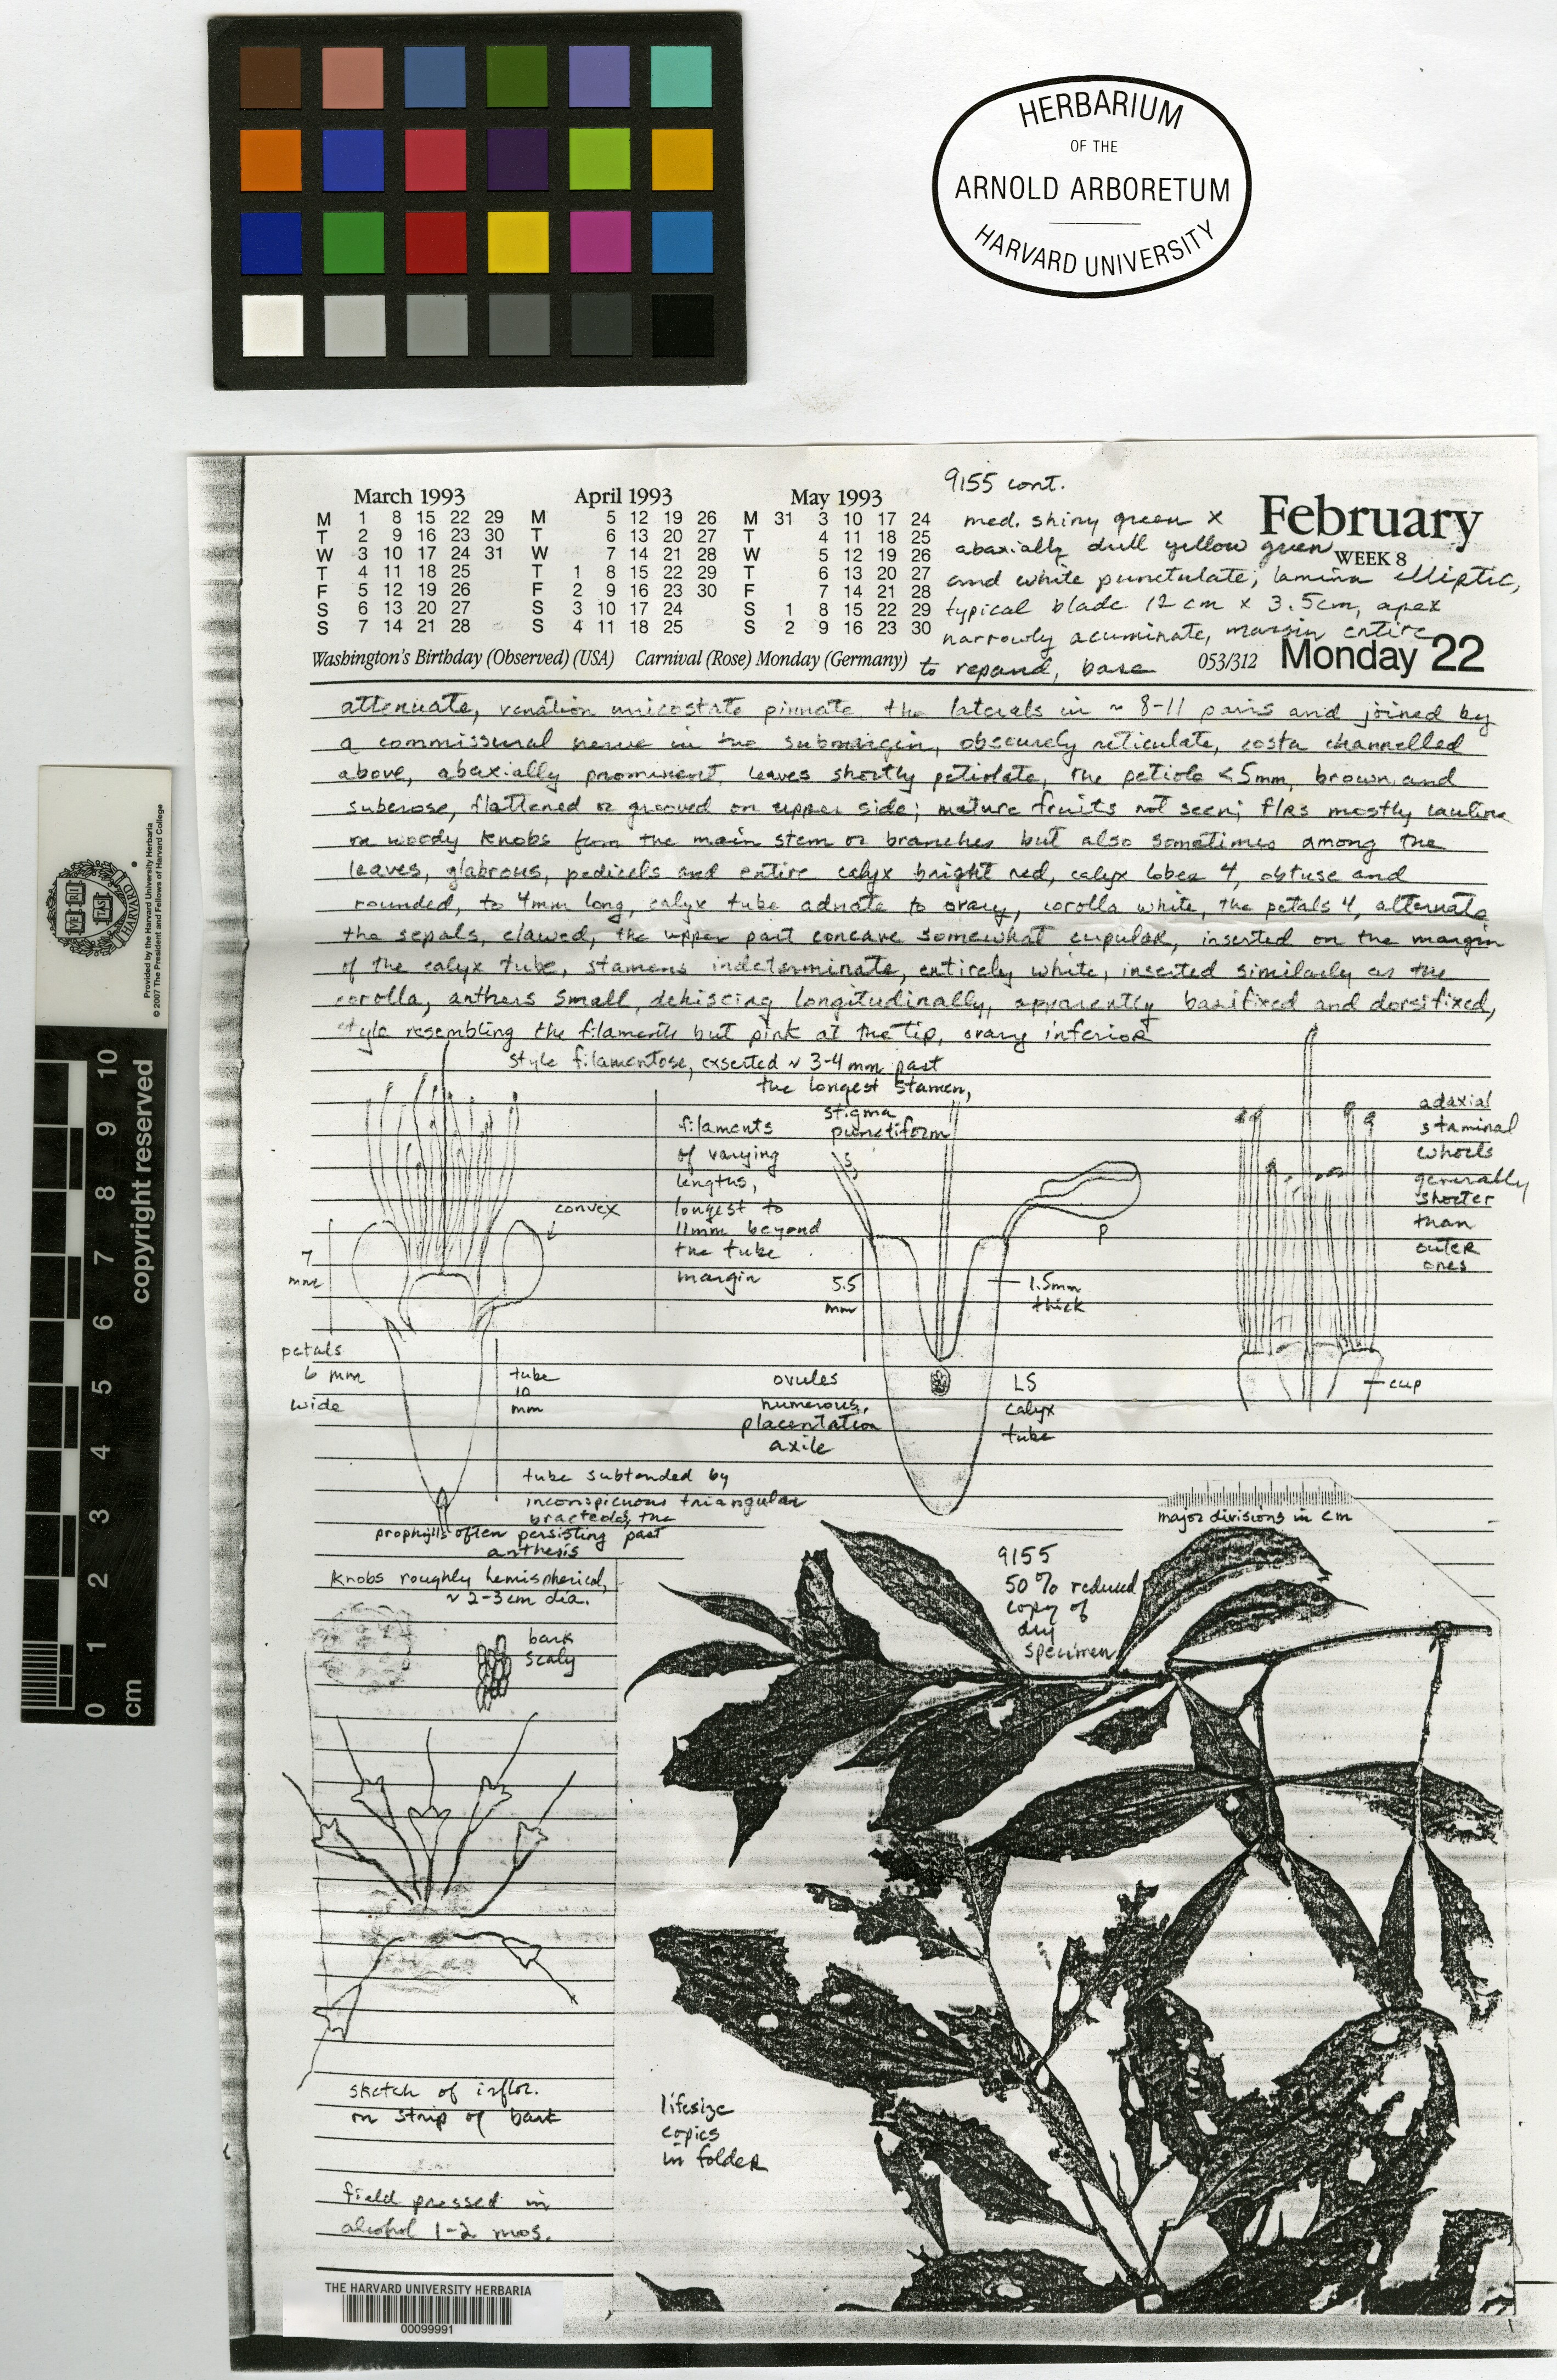 HERBARIUM
OF THE
ARNOLD ARBORETUM
HARVARD UNIVERSITY
9155 cont.
March 1993
M 1 8 15 22 29
T 2 9 16 23 30
W 3 10 17 24 31
T 4 11 18 25
F 5 12 19 26
S 6 13 20 27
S 7 14 21 28
April 1993
M 5 12 19 26
T 6 13 20 27
W 7 14 21 28
T 1 8 15 22 29
F 2 9 16 23 30
S 3 10 17 24
S 4 11 18 25
May 1993
M 31 3 10 17 24
T 4 11 18 25
W 5 12 19 26
T 6 13 20 27
F 7 14 21 28
S 1 8 15 22 29
S 2 9 16 23 30
February
WEEK 8
Washington's Birthday (Observed) (USA) Carnival (Rose) Monday (Germany)
053/312 Monday 22
med. shiny green x
abaxially dull yellow green
and white punctulate; lamina elliptic,
typical blade 12 cm x 3.5cm, apex
narrowly acuminate, margin entire
to repand, base
attenuate, venation unicostate pinnate the laterals in ~ 8-11 pairs and joined by
a commissural nerve in the submargin, obscurely reticulate, costa channelled
above, abaxially prominent, leaves shortly petiolate, the petiole <5mm, brown and
suberose, flattened or grooved on upper side; mature fruits not seen; flrs mostly cauline
on woody knobs from the main stem or branches but also sometimes among the
leaves, glabrous, pedicels and entire calyx bright red, calyx lobes 4, obtuse and
rounded, to 4mm long, calyx tube adnate to ovary, corolla white, the petals 4, alternate
the sepals, clawed, the upper part concave somewhat cupular, inserted on the margin
of the calyx tube, stamens indeterminate, entirely white, inserted similarly as the
corolla, anthers small, dehiscing longitudinally, apparently basifixed and dorsifixed,
style resembling the filaments but pink at the tip, ovary inferior
style filamentose, exserted ~ 3-4 mm past
the longest stamen,
stigma
punctiform
filaments
of varying
lengths,
longest to
11mm beyond
the tube
margin
convex
7
mm
petals
6 mm
wide
tube
10
mm
S
P
5.5
mm
1.5mm
thick
ovules
numerous,
placentation
axile
LS
calyx
tube
adaxial
staminal
whorls
generally
shorter
than
outer
ones
cup
tube subtended by
inconspicuous triangular
bracteoles, the
prophylls often persisting past
anthesis
major divisions in cm
9155
50% reduced
copy of
dry
specimen
knobs roughly hemispherical,
~ 2-3cm dia.
bark
scaly
sketch of inflor.
on strip of bark
field pressed in
alcohol 1-2 mos.
lifesize
copies
in folder
THE HARVARD UNIVERSITY HERBARIA
00099991
Provided by the Harvard University Herbaria
© 2007 The President and Fellows of Harvard College
HARVARD
VE RI TAS
copyright reserved
cm 0 1 2 3 4 5 6 7 8 9 10